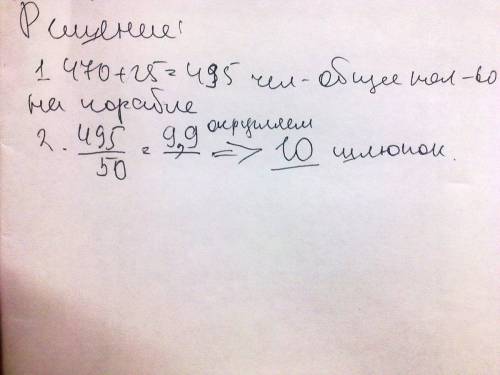 Решение:
1 470+25=495 чел-общее кол-во
на корабле
2. 495/50 = 9,9 округляем => 10 шлюпок.